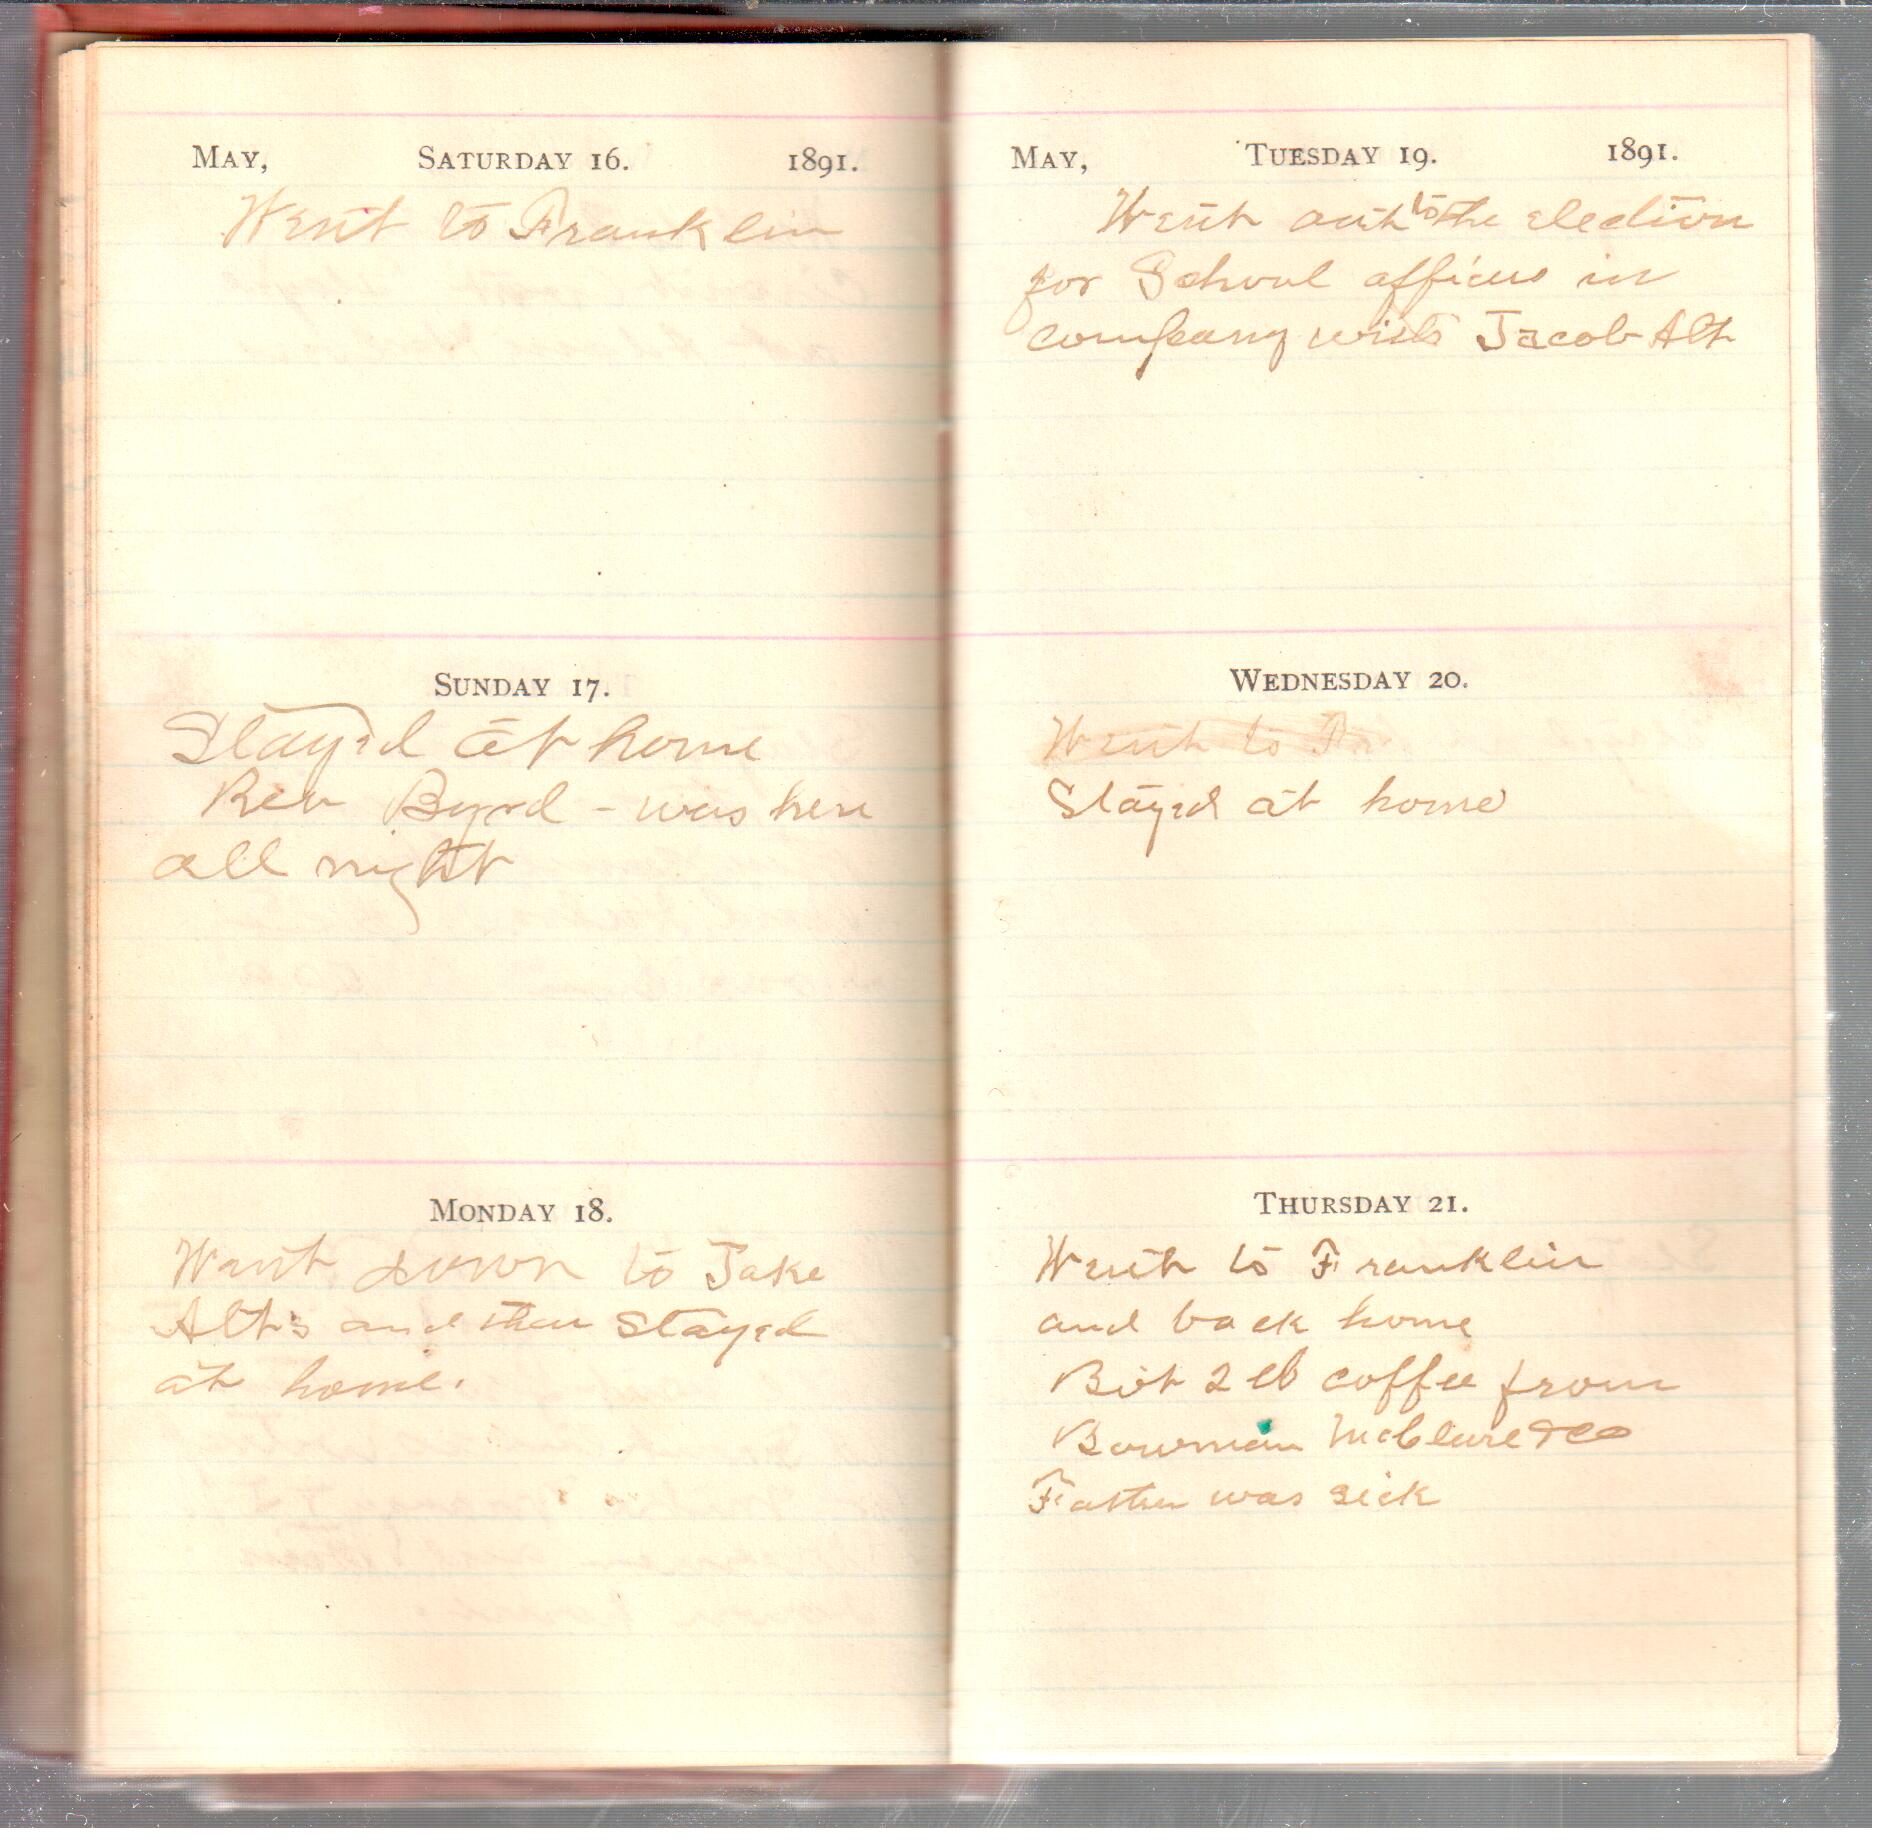 MAY, SATURDAY 16. 1891.
Went to Franklin
SUNDAY 17.
Stayed at home
Rev Byrd - was here
all night
MONDAY 18.
Went down to Jake
Alt's and then stayed
at home.
MAY, TUESDAY 19. 1891.
Went out to the election
for School officers in
company with Jacob Alt
WEDNESDAY 20.
Went to Fr
Stayed at home
THURSDAY 21.
Went to Franklin
and back home
Bot 2 lb coffee from
Bowman McClure & Co
Father was sick